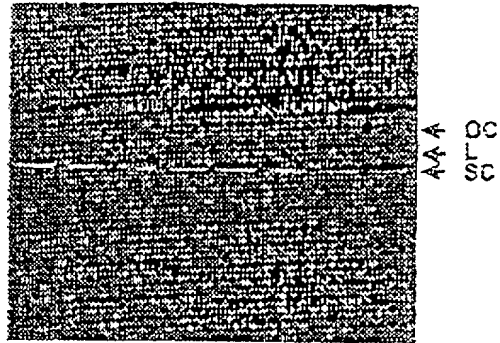 OC
L
SC